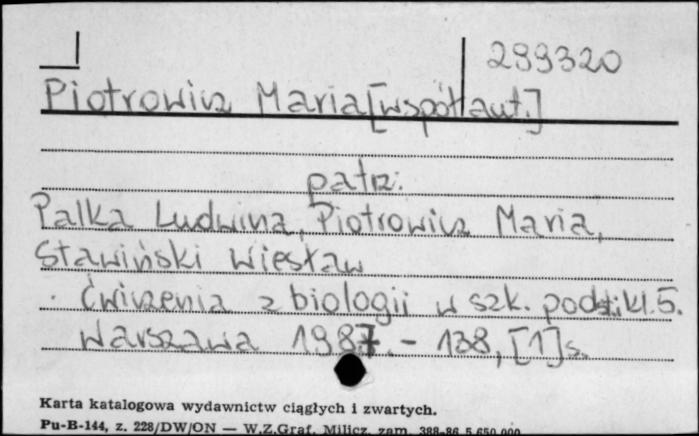 299320
Piotrowicz Maria [współaut.]
patrz:
Palka Ludwina, Piotrowicz Maria,
Stawiński Wiesław
Ćwiczenia z biologii w szk. podst. kl. 5.
Warszawa 1987. - 138, [1] s.
Karta katalogowa wydawnictw ciągłych i zwartych.
Pu-B-144, z. 228/DW/ON — W.Z.Graf. Milicz, zam. 388-86 5.650.000